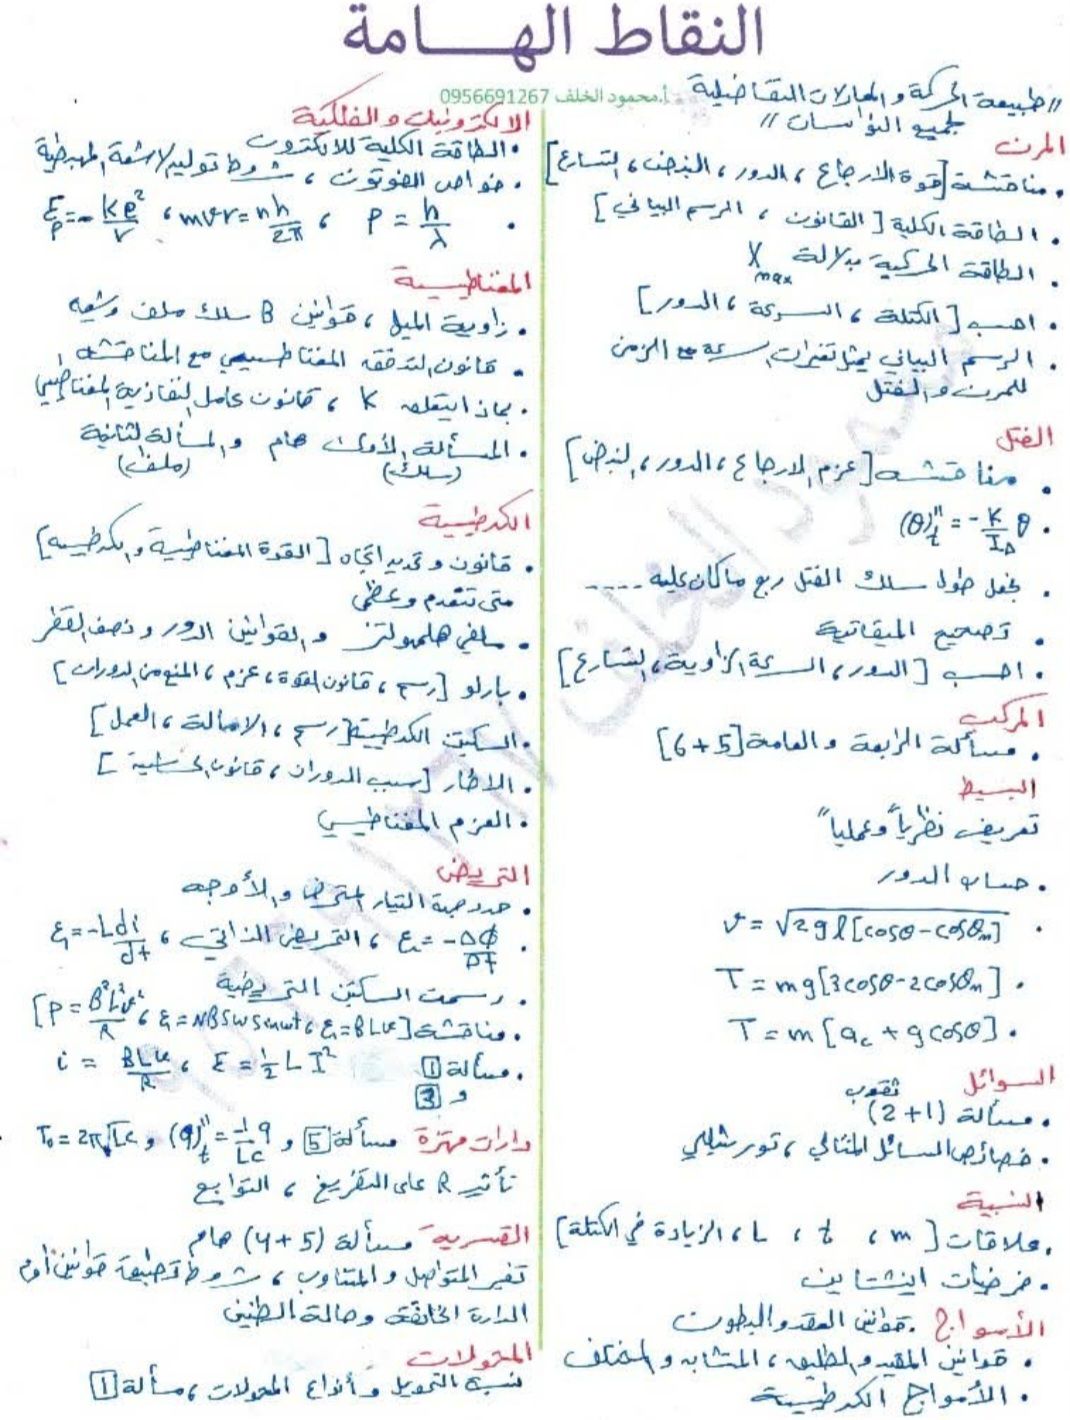 النقاط الهـــامة
أ.محمود الخلف 0956691267
// طبيعة الحركة و المعادلات التفاضلية
لجميع النواسات //
المرن
. مناقشة [قوة الارجاع ، الدور ، النبض ، التسارع]
. الطاقة الكلية [ القانون ، الرسم البياني ]
. الطاقة الحركية بدلالة Xmax
. احسب [ الكتلة ، السرعة ، الدور ]
. الرسم البياني يمثل تغيرات السرعة مع الزمن
للمرن و الفتل
الفتل
. مناقشة [عزم الارجاع ، الدور ، النبض]
. (θ)''t = - K/IΔ θ
. نجعل طول سلك الفتل ربع ماكان عليه ----
. تصحيح الميقاتية
. احسب [ الدور ، السرعة الزاوية ، التسارع ]
المركب
. مسألة الرابعة و العامة [5+6]
البسيط
تعريف نظرياً وعملياً"
. حساب الدور
. v = √2gl[cosθ-cosθm]
. T = mg[3cosθ-2cosθm]
. T = m[ac + g cosθ]
السوائل
ثقوب
. مسألة (1+2)
. خصائص السائل المثالي ، تورشيلي
النسبية
. علاقات [ m ، t ، L ، الزيادة في الكتلة]
. فرضيات اينشتاين
الأمواج . قوانين العقد والبطون
. قوانين المقيد و الطليق ، المتشابه و المختلف
. الأمواج الكهرطيسية
الالكترونيات و الفلكية
. الطاقة الكلية للالكترون
. خواص الفوتون ، شروط توليد الاشعة المهبطية
. Ep = - Ke²/r ، mvr = nh/2π ، P = h/λ
المغناطيسية
. زاوية الميل ، قوانين B سلك ملف وشيعة
. قانون التدفق المغناطيسي مع المناقشة
. بماذا يتعلق K ، قانون عامل النفاذية المغناطيسي
. المسألة الأولى هام و المسألة الثانية
(سلك) (ملف)
الكهرطيسية
. قانون و تحديد اتجاه [ القوة المغناطيسية و الكهرطيسية]
متى تنعدم وعظمى
. ملفي هلمهولتز و القوانين الدور و نصف القطر
. بارلو [رسم ، قانون القوة ، عزم ، المنع من الدوران ]
. السكتين الكهرطيسية [رسم ، الاحالة ، العمل ]
. الاطار [سبب الدوران ، قانون الحساسية ]
. العزم المغناطيسي
التحريض
. حدد جهة التيار المتحرض و الأوجه
. ε = -Δφ/Δt ، التحريض الذاتي ، ε = -L di/dt
. رسمت السكتين التحريضية
. مناقشة [ε = BLv ، ε = NBSω sinωt ، P = B²L²v²/R]
. مسألة 1 و 3 ، E = ½ L I² ، i = BLv/R
دارات مهتزة مسألة 5 و (q)''t = -1/LC q و T₀ = 2π√LC
تأثير R على التفريغ ، التوابع
القسرية مسألة (5+4) هام
تفسر المتواصل و المتناوب ، شروط تطبيق قوانين أوم
الدارة الخانقة وحالة الطنين
المحولات
نسبة التحويل و أنواع المحولات ، مسألة 1